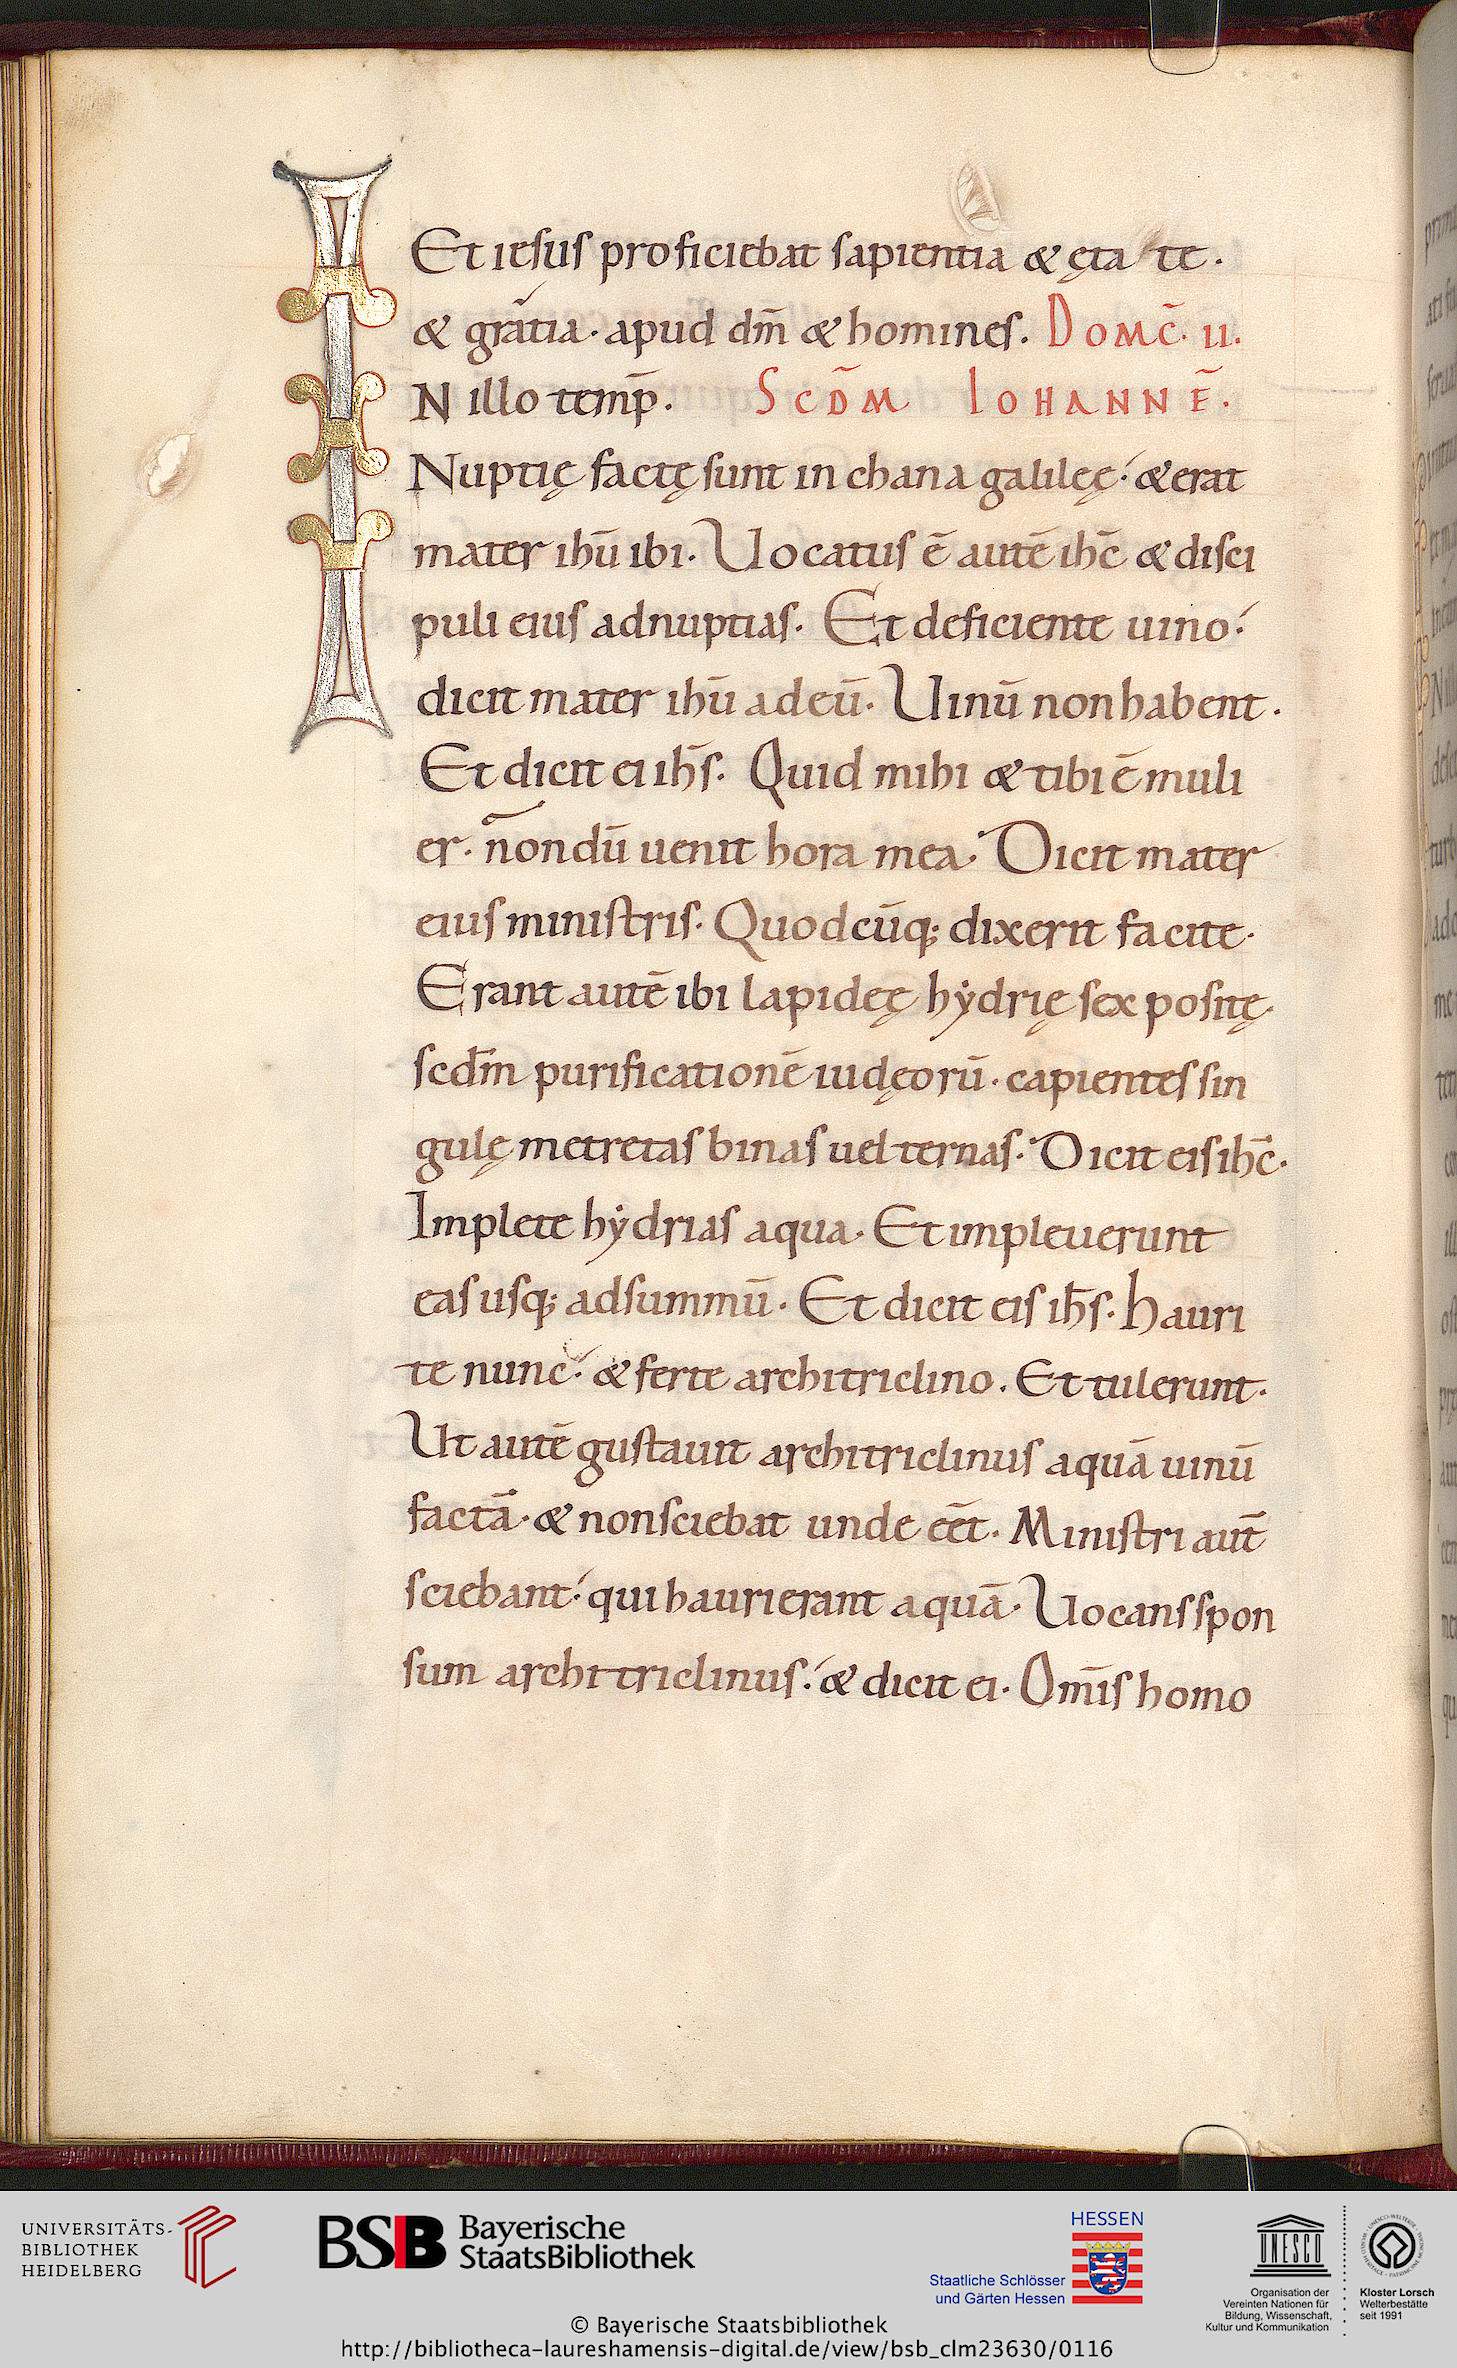 Et iesus proficiebat sapientia & ęta te.
& gratia· apud dm̄ & homines. Domc̄· II.
IN illo temp̄. Scd̄m Iohannē.
Nuptię factę sunt in chana galileę· & erat
mater ihū ibi· Uocatus ē autē ihc̄ & disci
puli eius adnuptias· Et deficiente uino·
dicit mater ihū ad eū· Uinū non habent·
Et dicit ei ihs̄· Quid mihi & tibi ē muli
er· nondū uenit hora mea· Dicit mater
eius ministris· Quodcūq; dixerit facite·
Erant autē ibi lapideę hẏdrię sex positę·
scdm̄ purificationē iudęorū· capientes sin
gulę metretas binas uel ternas· Dicit eis ihc̄·
Implete hẏdrias aqua· Et impleuerunt
eas usq; adsummū· Et dicit eis ihs̄· hauri
te nunc· & ferte architriclino. Et tulerunt·
Ut autē gustauit architriclinus aquā uinū
factā· & non sciebat unde eēt· Ministri aut̄
sciebant· qui haurierant aquā· Uocans spon
sum architriclinus· & dicit ei· Om̄is homo
UNIVERSITÄTS-
BIBLIOTHEK
HEIDELBERG
BSB Bayerische
StaatsBibliothek
HESSEN
Staatliche Schlösser
und Gärten Hessen
UNESCO
Organisation der
Vereinten Nationen für
Bildung, Wissenschaft,
Kultur und Kommunikation
Kloster Lorsch
Welterbestätte
seit 1991
© Bayerische Staatsbibliothek
http://bibliotheca-laureshamensis-digital.de/view/bsb_clm23630/0116